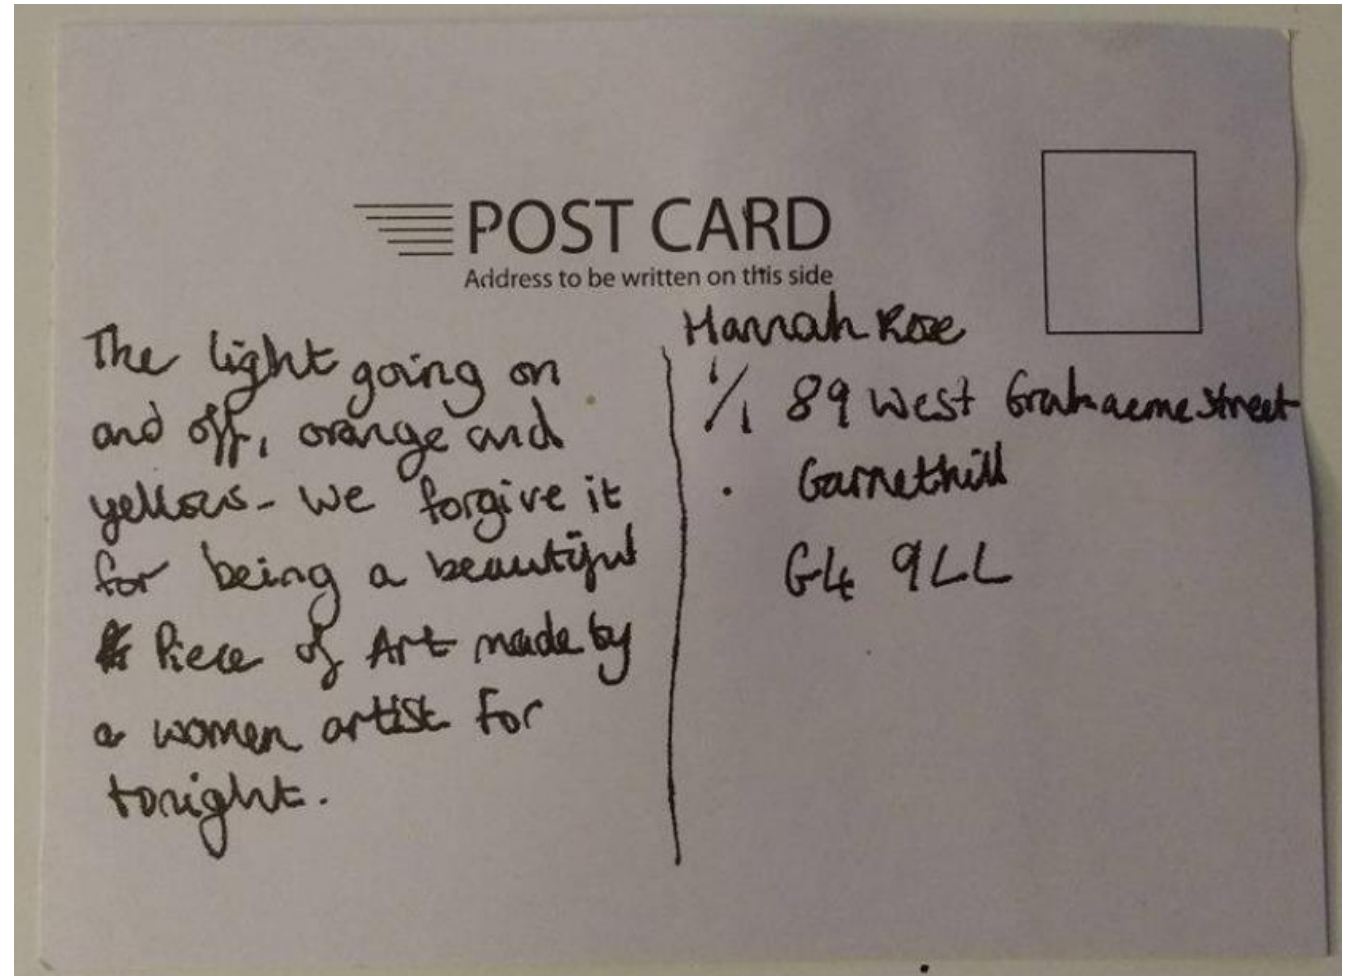 POST CARD
Address to be written on this side
The light going on
and off, orange and
yellows - we forgive it
for being a beautiful
Piece of Art made by
a women artist for
tonight.
Hannah Rose
1/1 89 West Grahaeme Street
Garnethill
G4 9LL